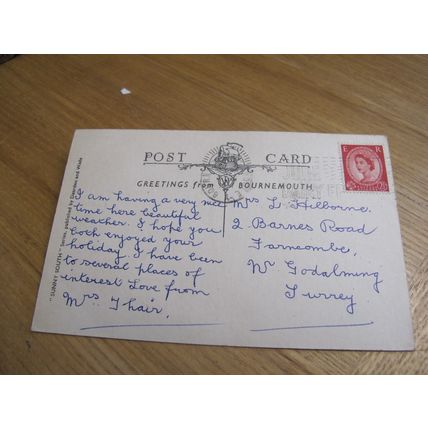 POST CARD
GREETINGS from BOURNEMOUTH
E R
"SUNNY SOUTH" Series, published by Dearden and Wade
I am having a very nice
time here beautiful
weather. I hope you
both enjoyed your
holiday. I have been
to several places of
interest Love from
Mrs Thair.
Mrs L Hilborne.
2 Barnes Road
Farncombe,
Nr Godalming
Surrey